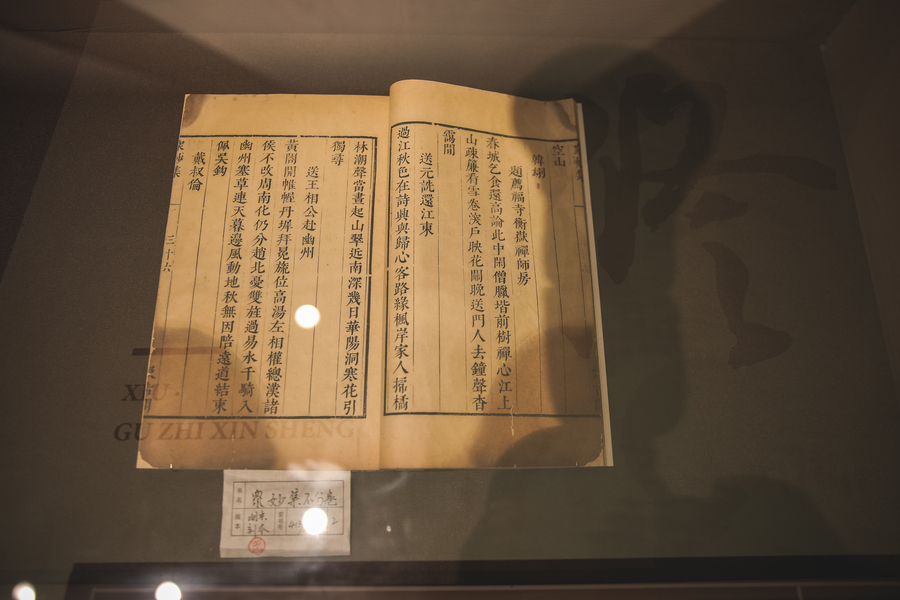 空山
韓翃
題薦福寺衡嶽禪師房
春城乞食還高論此中閒僧臘堦前樹禪心江上
山疎簾看雪卷深戶映花關晚送門人去鐘聲杳
靄間
送元詵還江東
過江秋色在詩興與歸心客路緣楓岸家人掃橘
林潮聲當晝起山翠近南深幾日華陽洞寒花引
獨尋
送王相公赴幽州
黃閣開帷幄丹墀拜冕旒位高湯左相權總漢諸
侯不改周南化仍分趙北憂雙旌過易水千騎入
幽州寒草連天暮邊風動地秋無因陪遠道結束
佩吳鈎
戴叔倫
三十六
XIU
GU ZHI XIN SHENG
眾妙集不分卷
版本
明末
刻本